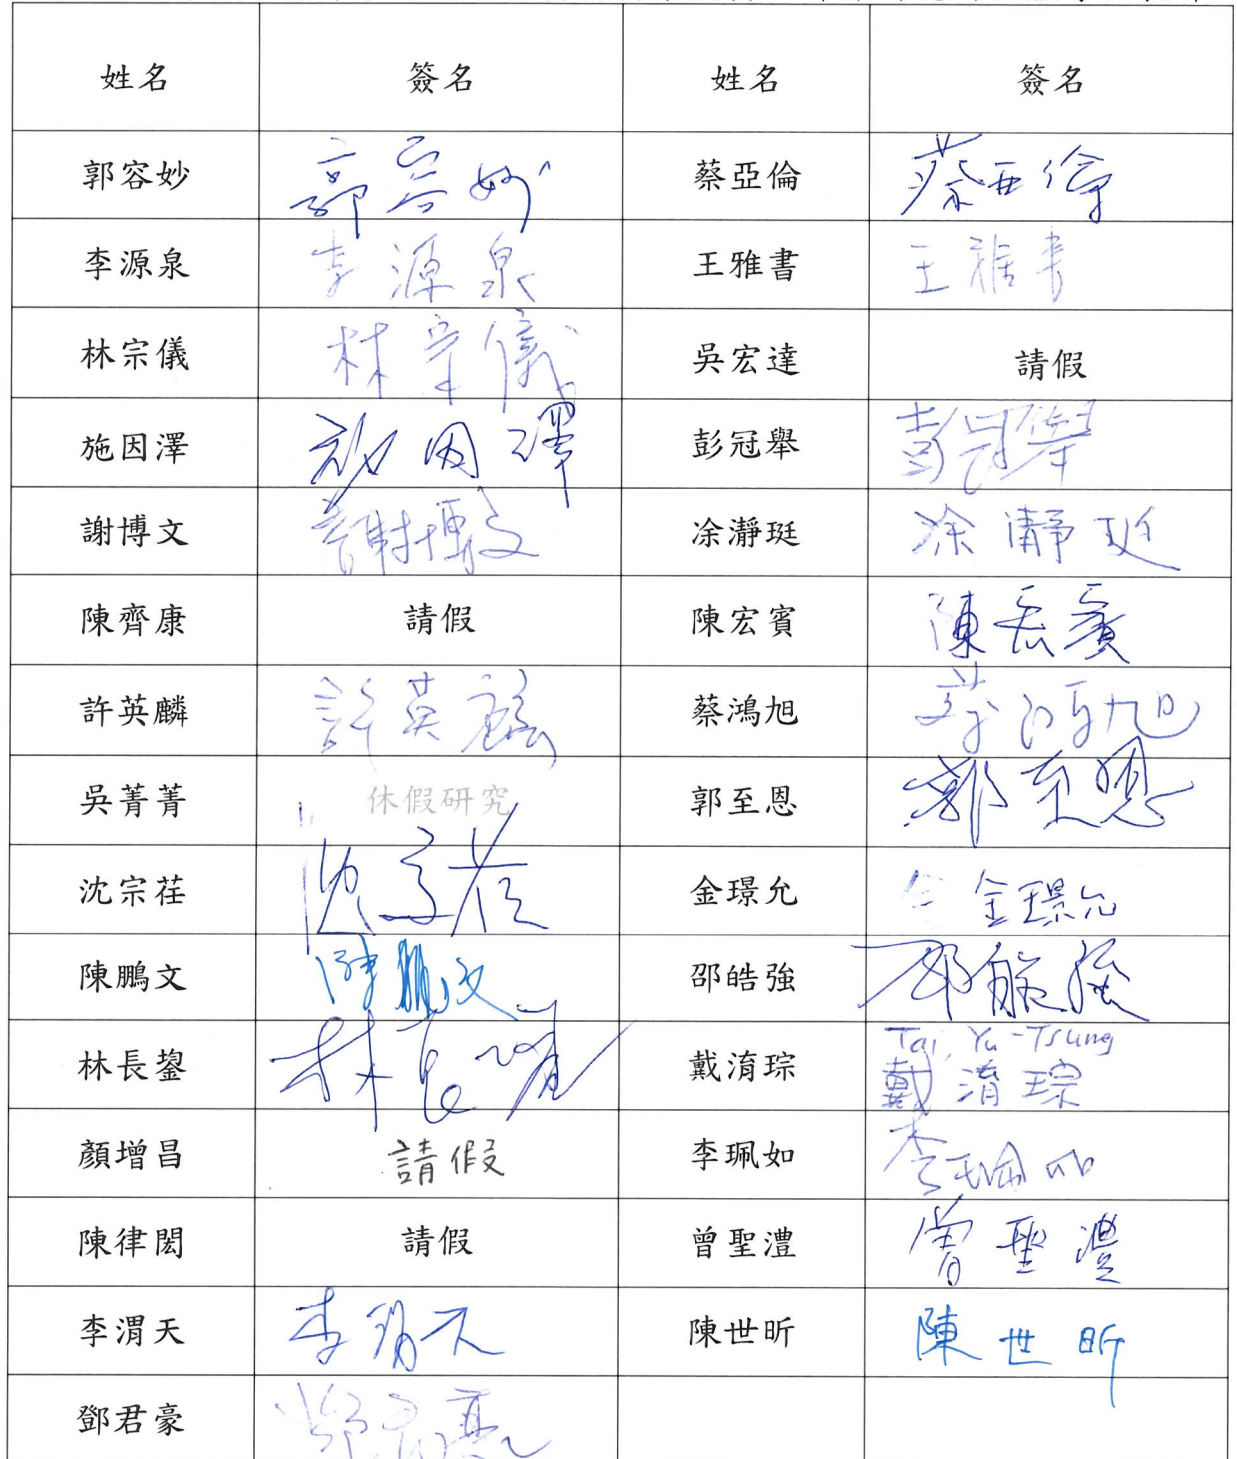 姓名 簽名 姓名 簽名
郭容妙 郭容妙 蔡亞倫 蔡亞倫
李源泉 李源泉 王雅書 王雅書
林宗儀 林宗儀 吳宏達 請假
施因澤 施因澤 彭冠舉 彭冠舉
謝博文 謝博文 凃瀞珽 凃瀞珽
陳齊康 請假 陳宏賓 陳宏賓
許英麟 許英麟 蔡鴻旭 蔡鴻旭
吳菁菁 休假研究 郭至恩 郭至恩
沈宗荏 沈宗荏 金璟允 金璟允
陳鵬文 陳鵬文 邵皓強 邵皓強
林長鋆 林長鋆 戴淯琮 Tai, Yu-Tsung
戴淯琮
顏增昌 請假 李珮如 李珮如
陳律閎 請假 曾聖澧 曾聖澧
李渭天 李渭天 陳世昕 陳世昕
鄧君豪 鄧君豪